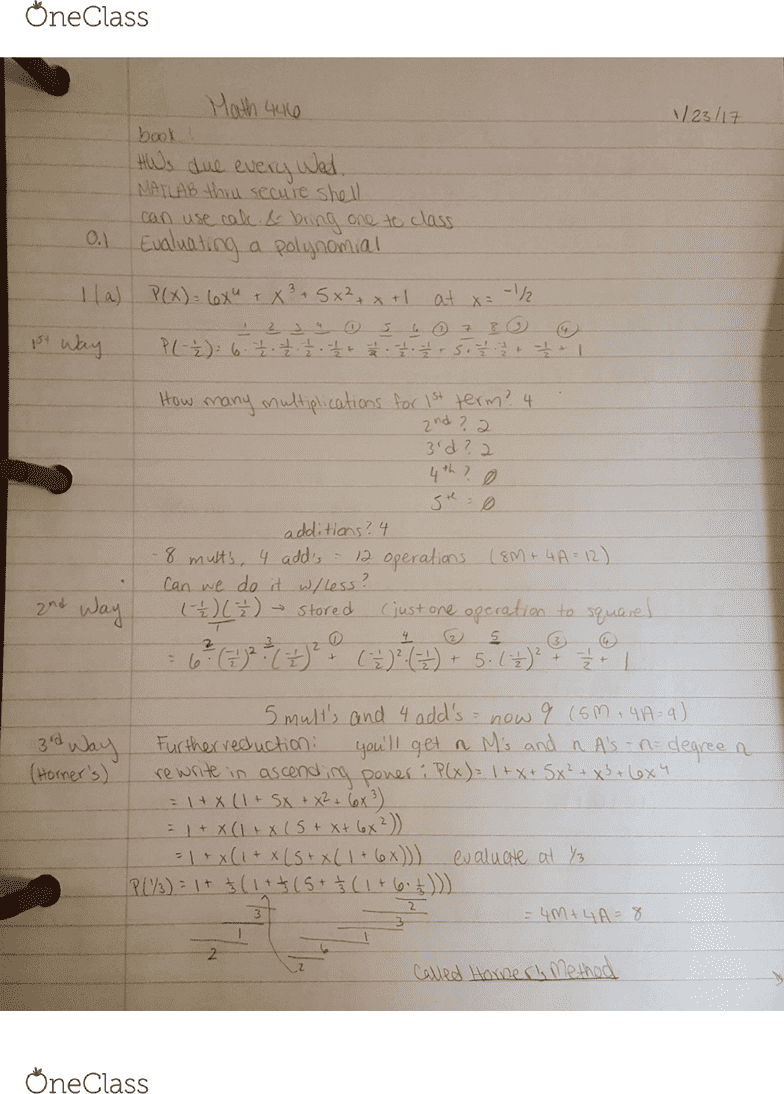 OneClass
Math 446 1/23/17
book:
HWs due every Wed.
MATLAB thru secure shell
can use calc & bring one to class
0.1 Evaluating a polynomial
1(a) P(x) = 6x⁴ + x³ + 5x² + x + 1 at x = -1/2
1 2 3 4 ① 5 6 ② 7 8 ③ ④
1st Way P(-1/2) = 6·-1/2·-1/2·-1/2·-1/2 + -1/2·-1/2·-1/2 + 5·-1/2·-1/2 + -1/2 + 1
How many multiplications for 1st term? 4
2nd? 2
3rd? 2
4th? 0
5th = 0
additions? 4
- 8 mults, 4 add's = 12 operations (8M + 4A = 12)
Can we do it w/less?
2nd Way (-1/2)(-1/2) → stored (just one operation to square)
1
2 3 ① 4 ② 5 ③ ④
= 6·(-1/2)²·(-1/2)² + (-1/2)²·(-1/2) + 5·(-1/2)² + -1/2 + 1
5 mult's and 4 add's = now 9 (5M + 4A = 9)
3rd Way Further reduction: you'll get n M's and n A's - n = degree n
(Horner's) rewrite in ascending power: P(x) = 1 + x + 5x² + x³ + 6x⁴
= 1 + x(1 + 5x + x² + 6x³)
= 1 + x(1 + x(5 + x + 6x²))
= 1 + x(1 + x(5 + x(1 + 6x))) evaluate at 1/3
P(1/3) = 1 + 1/3(1 + 1/3(5 + 1/3(1 + 6·1/3)))
2
3 3 = 4M + 4A = 8
1 1
2 6
2 Called Horner's Method
OneClass